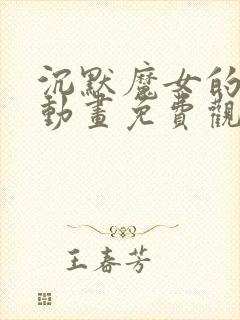 沉默魔女的
動畫免費觀
王春芳